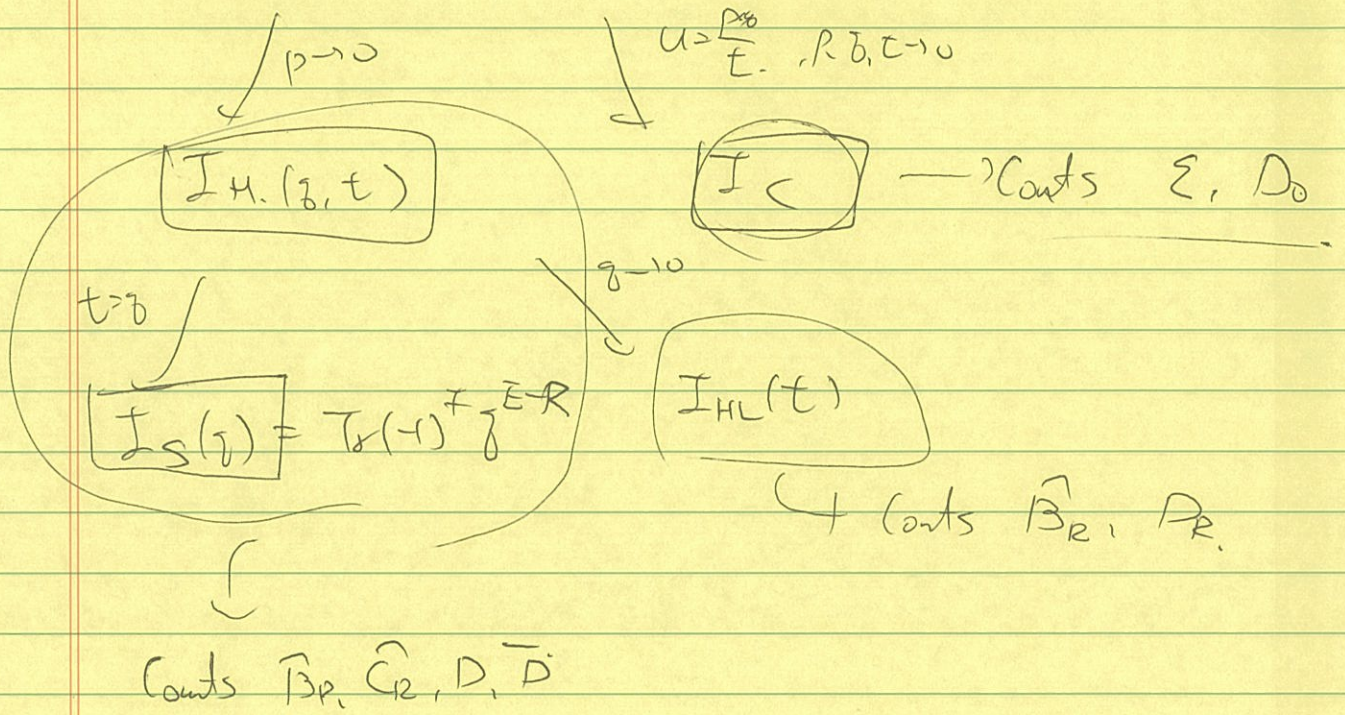 p→0 u=pq/t. , p,q,t→0
I_H.(q,t) I_C → Counts ℰ, D_0
t=q q→0
I_S(q) = Tr(-1)^F q^{E-R} I_HL(t)
↳ Counts B̂_R, D_R.
Counts B̂_R, Ĉ_R, D, D̄